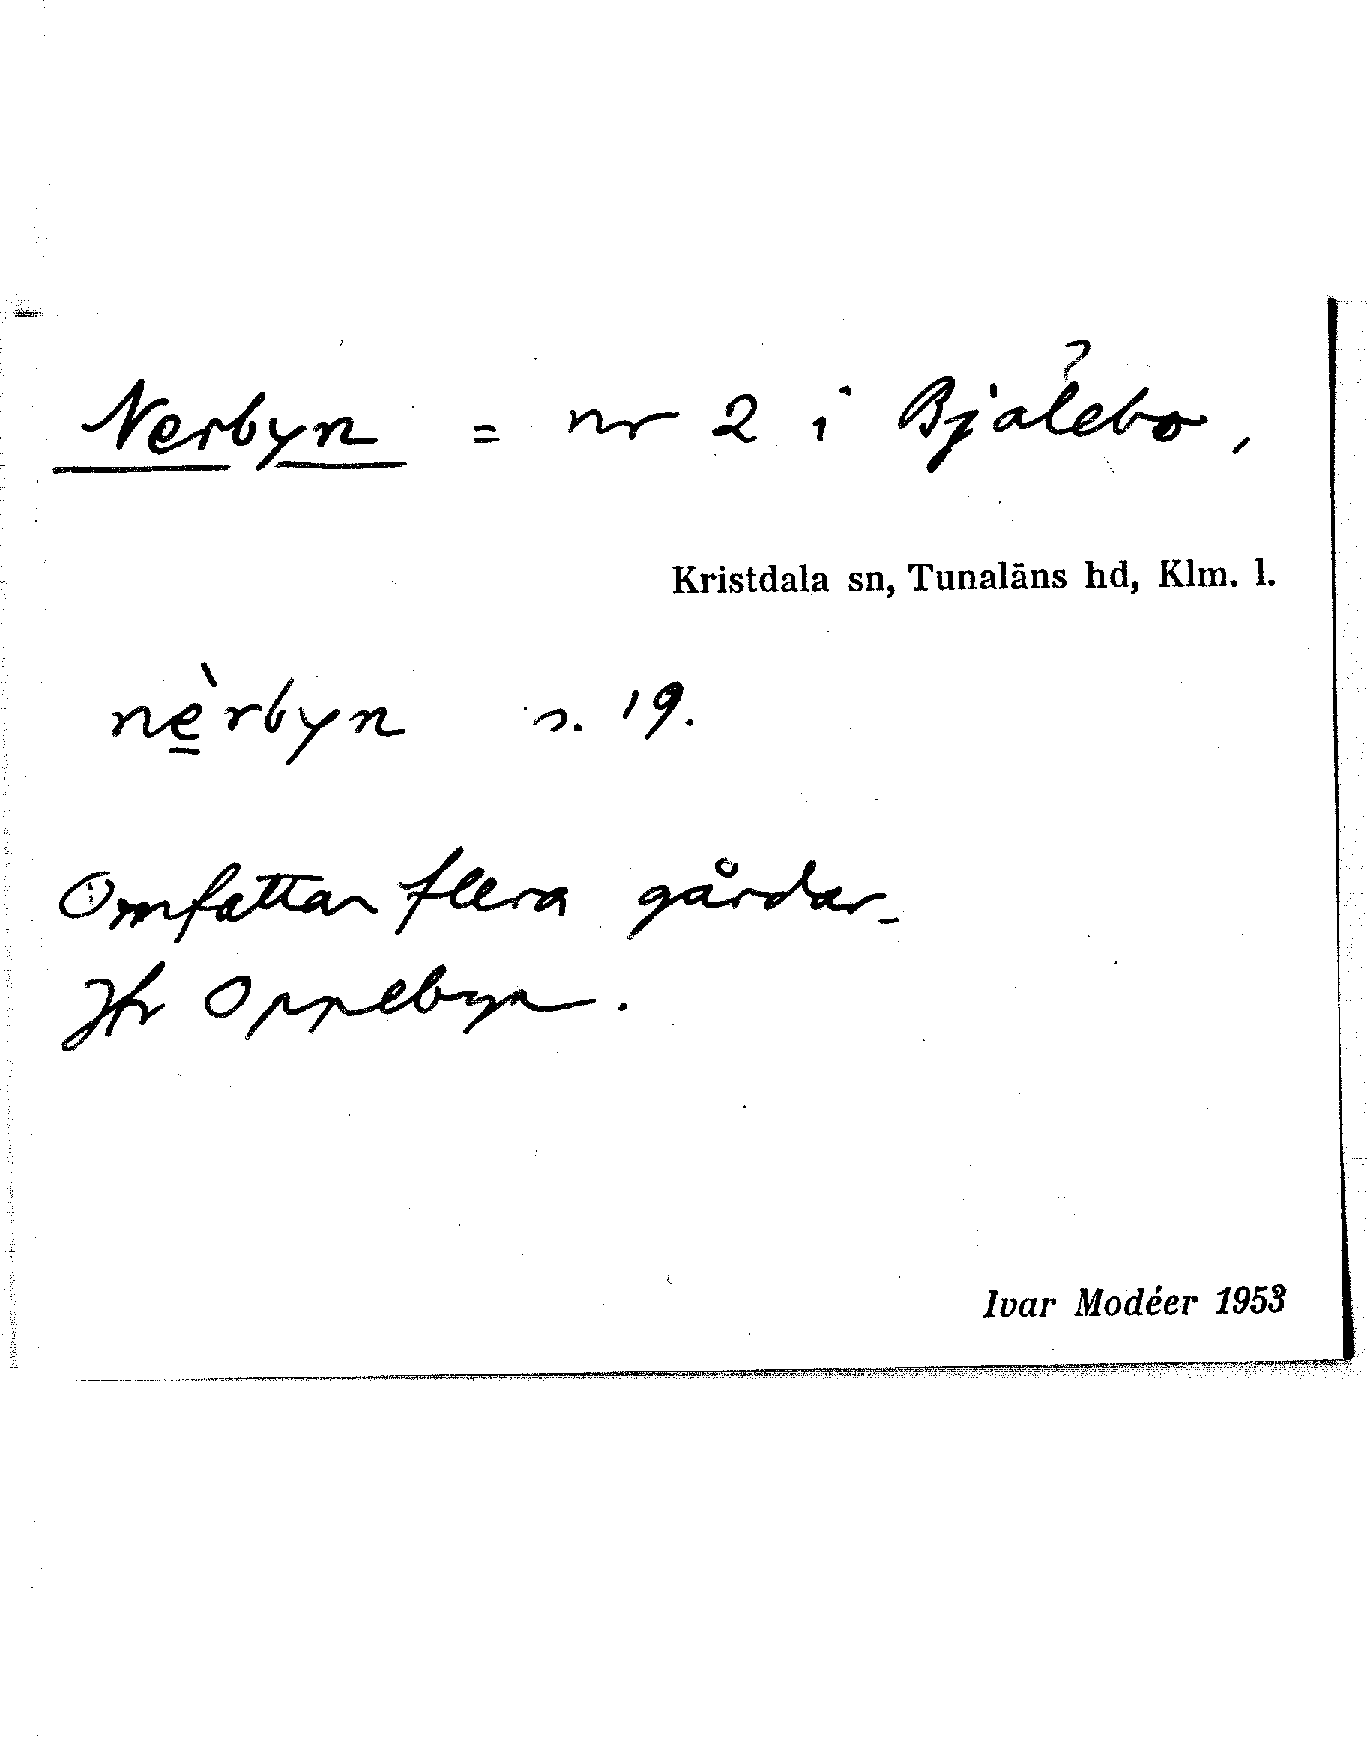 Nerbyn = nr 2 i Bjälebo,
Kristdala sn, Tunaläns hd, Klm. l.
nè̱rbyn s. 19.
Omfattar flera gårdar.
Jfr Oppebyn.
Ivar Modéer 1953